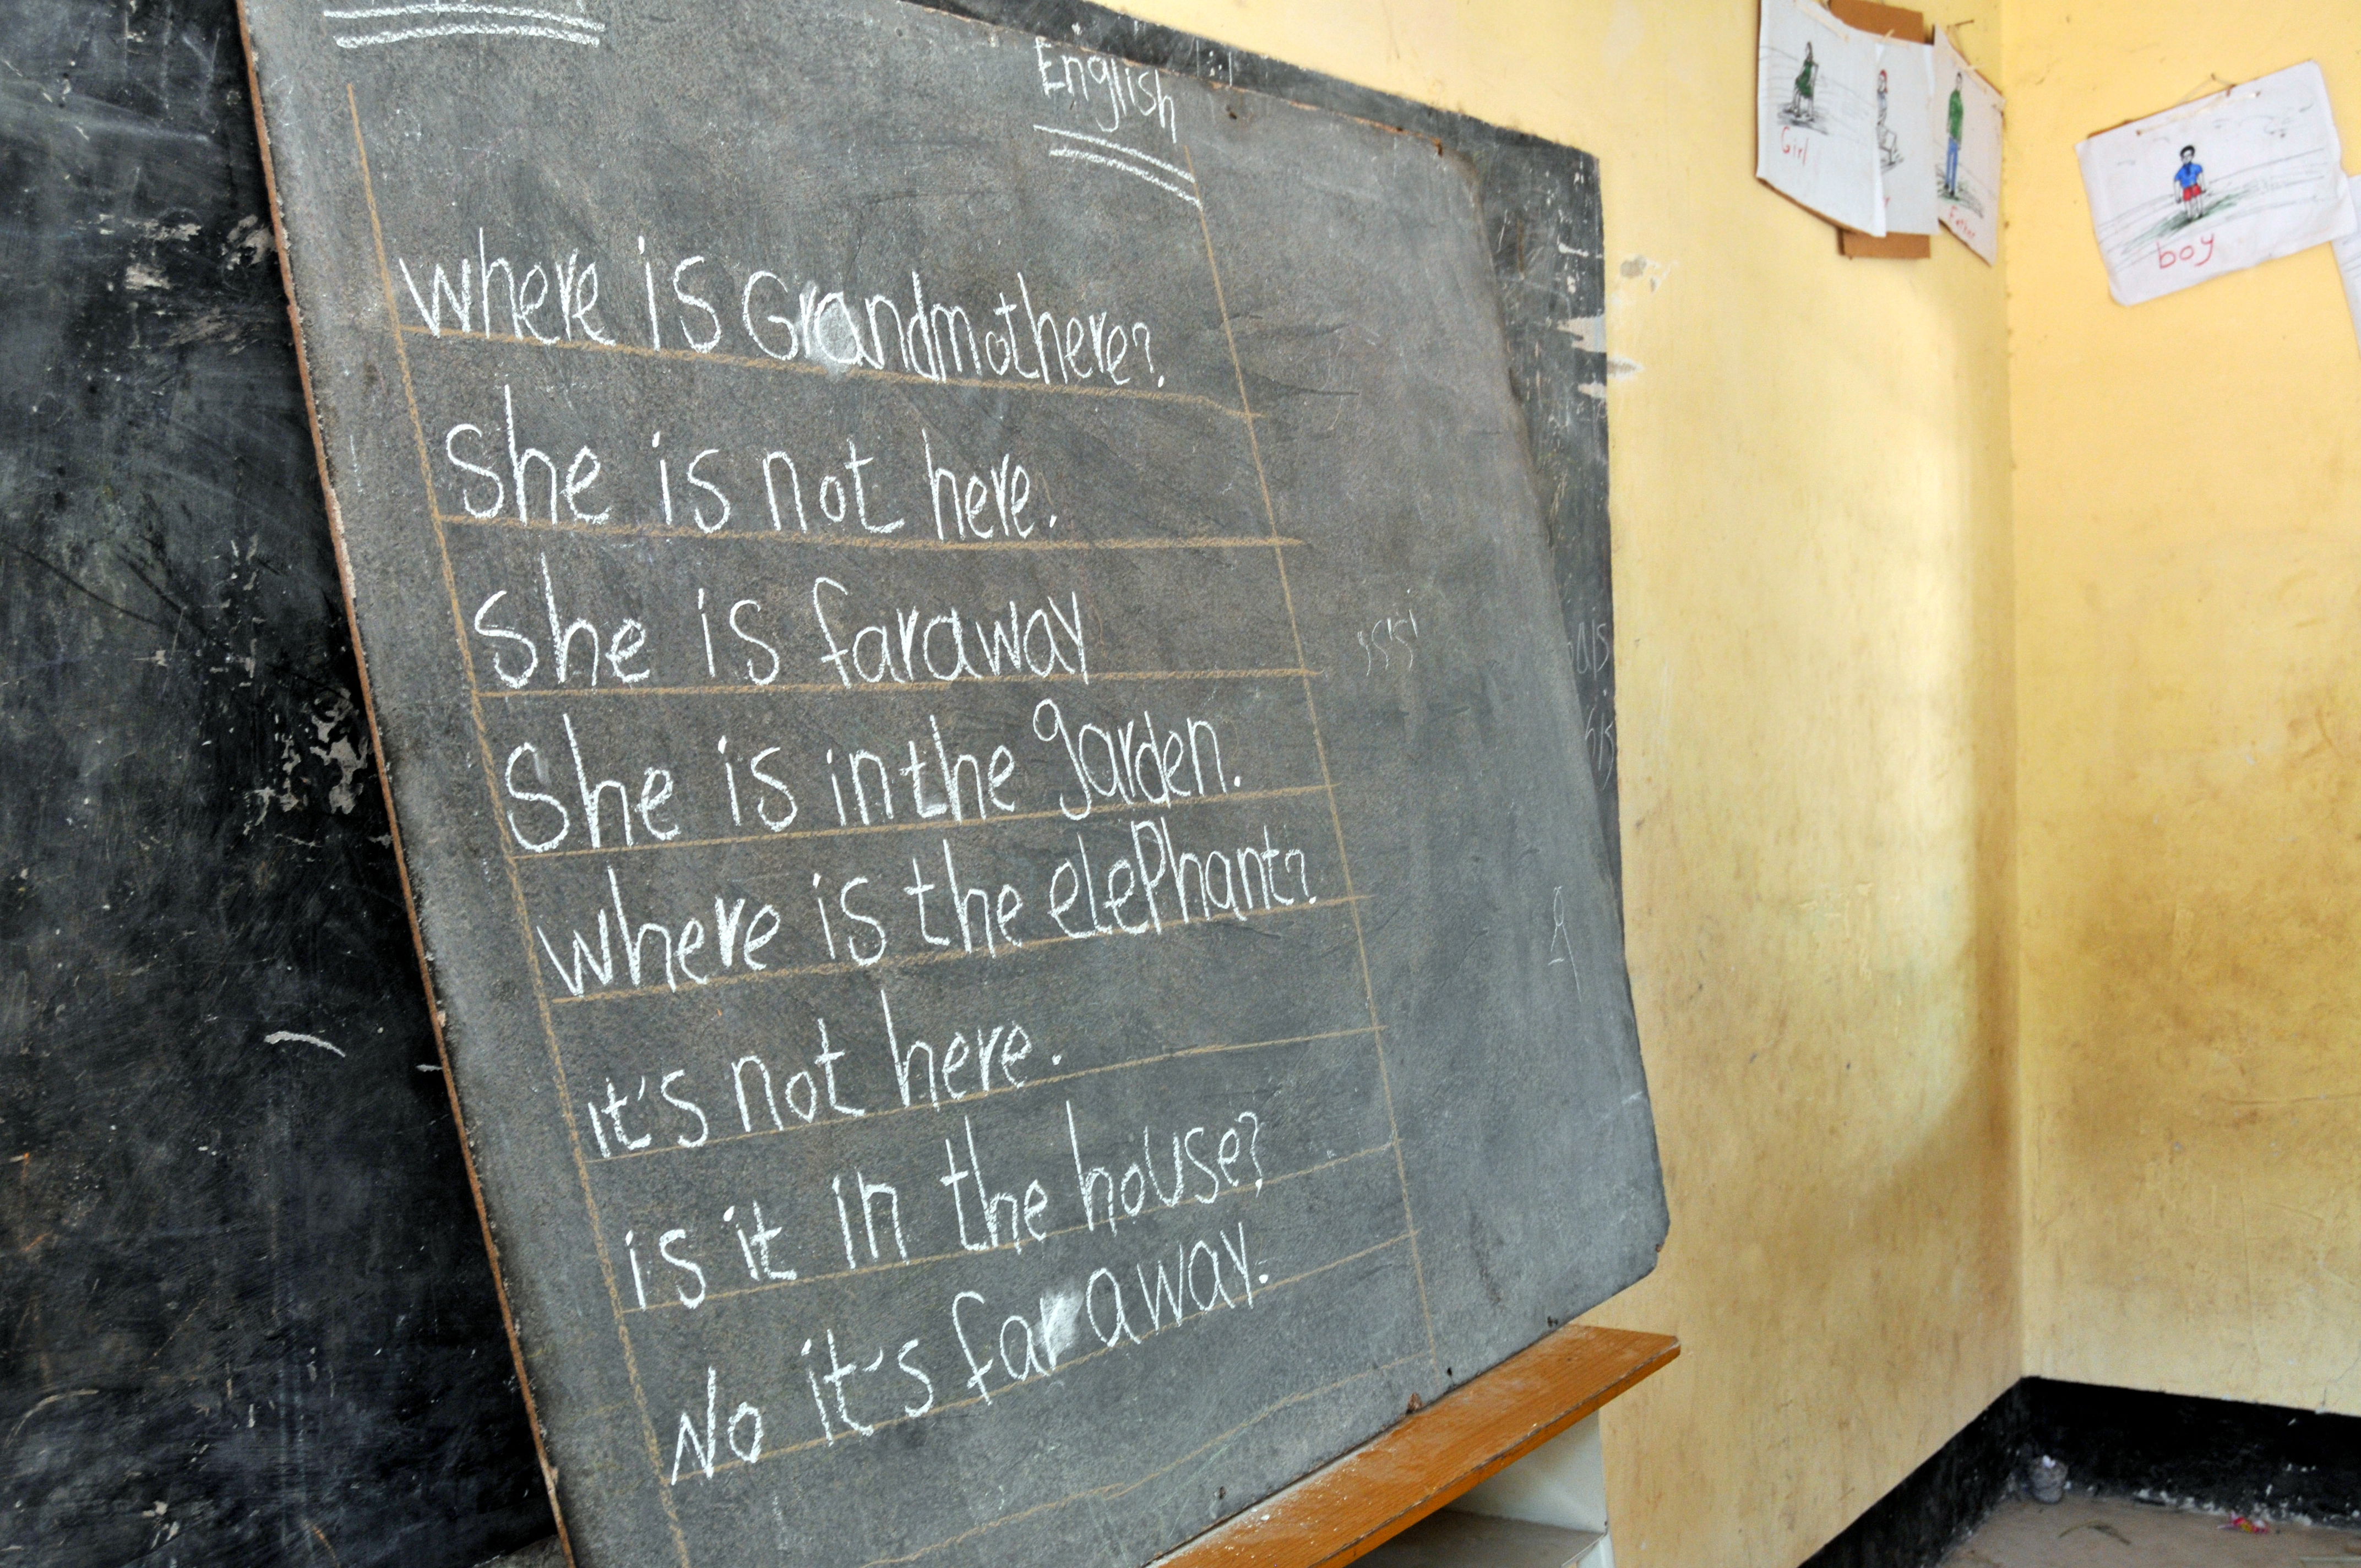 English
where is Grandmothere?
She is not here.
She is faraway
She is in the garden.
where is the elePhant?
it's not here.
is it in the house?
No it's far away.
Girl
Father
boy